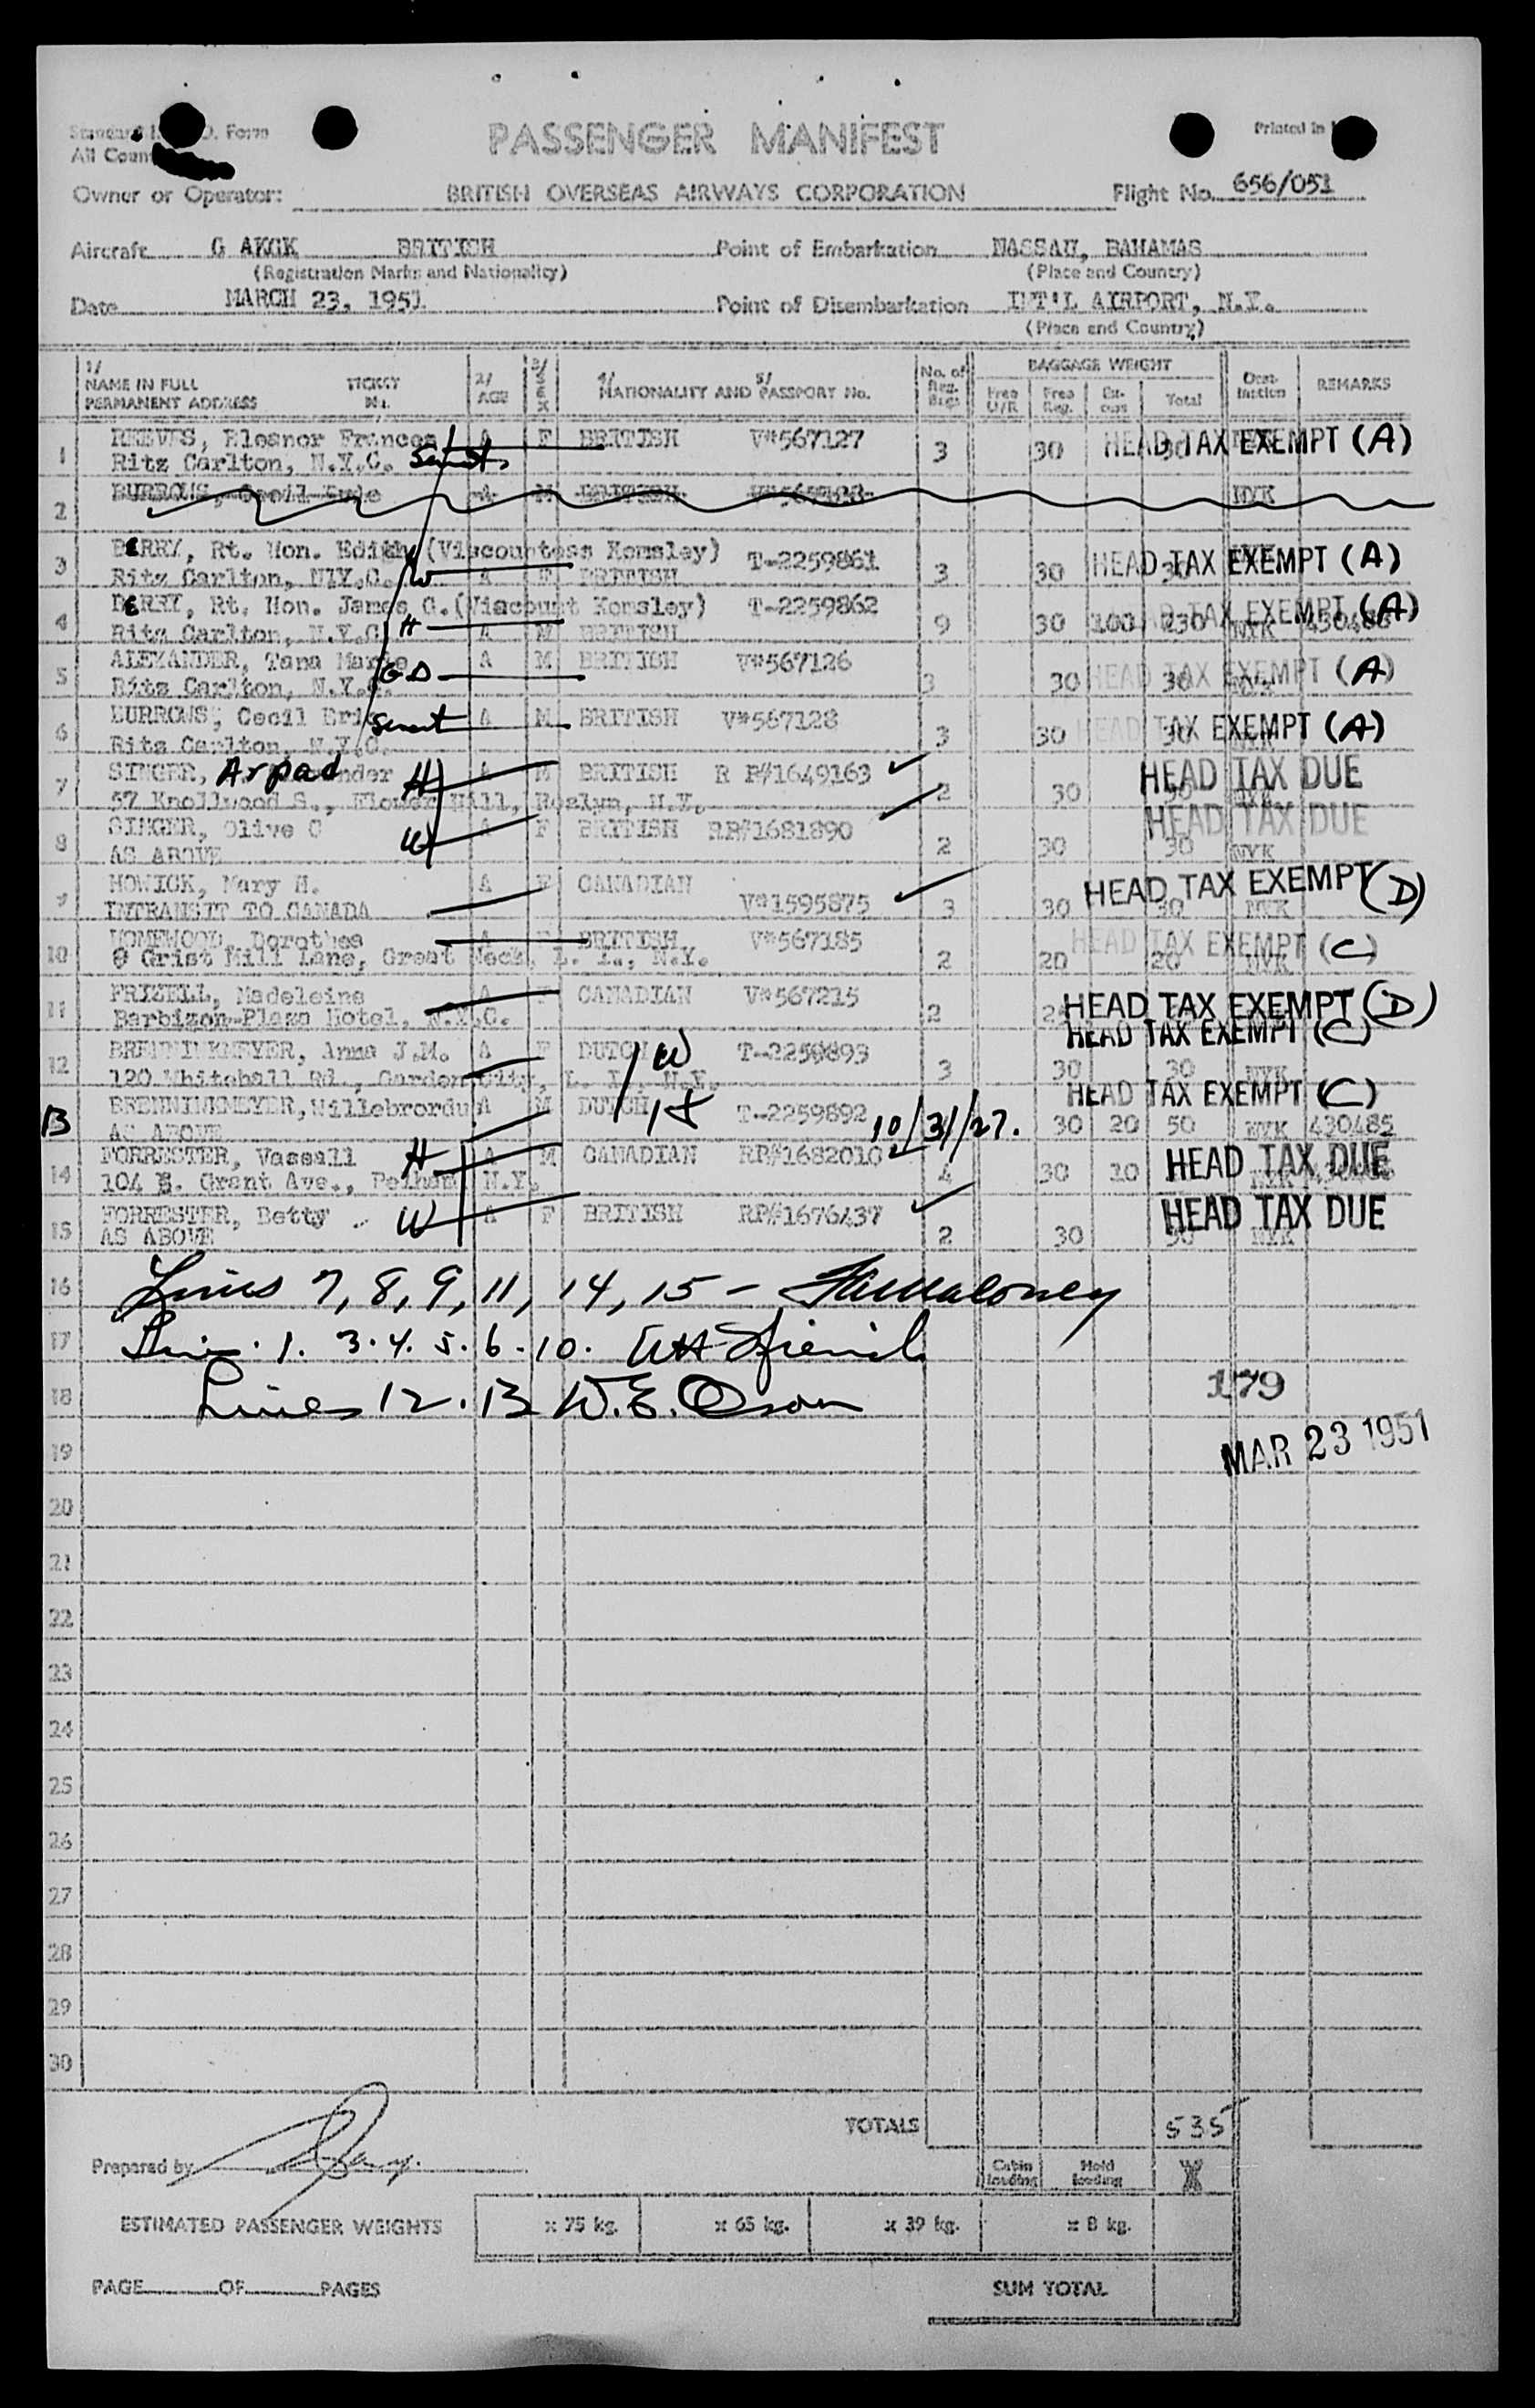 All
PASSENGER MANIFEST
Printed in
Owner or Operator: BRITISH OVERSEAS AIRWAYS CORPORATION Flight No. 656/051
Aircraft G AKGK BRITISH Point of Embarkation NASSAU, BAHAMAS
(Registration Marks and Nationality) (Place and Country)
Date MARCH 23, 1951 Point of Disembarkation INT'L AIRPORT, N.Y.
(Place and Country)
1/ NAME IN FULL PERMANENT ADDRESS TICKET No. 2/ AGE 3/ SEX 4/ NATIONALITY AND 5/ PASSPORT No. No. of Reg. Bags BAGGAGE WEIGHT Free U/R Free Reg. Ex-cess Total Dest-ination REMARKS
1 REEVES, Eleanor Frances A F BRITISH V#567127 3 30 30 HEAD TAX EXEMPT (A)
Ritz Carlton, N.Y.C.
2 BURROWS, Cecil A M BRITISH NYK
3 BERRY, Rt. Hon. Edith (Viscountess Kemsley) T-2259861
Ritz Carlton, N.Y.C. W A F BRITISH 3 30 30 HEAD TAX EXEMPT (A)
4 BERRY, Rt. Hon. James G. (Viscount Kemsley) T-2259862
Ritz Carlton, N.Y.C. H A M BRITISH 9 30 100 230 NYK 430486 HEAD TAX EXEMPT (A)
5 ALEXANDER, Tana A M BRITISH V#567126
Ritz Carlton, N.Y.C. 3 30 30 HEAD TAX EXEMPT (A)
6 BURROWS, Cecil Eric A M BRITISH V#567128
Ritz Carlton, N.Y.C. 3 30 30 HEAD TAX EXEMPT (A)
7 SINGER, Arpad H A M BRITISH R P#1649163
57 Knollwood S., Flower Hill, Roslyn, N.Y. 2 30 30 HEAD TAX DUE
8 SINGER, Olive C W A F BRITISH RP#1681890
AS ABOVE 2 30 30 NYK HEAD TAX DUE
9 HOWICK, Mary H. A F CANADIAN
INTRANSIT TO CANADA V#1595875 3 30 30 NYK HEAD TAX EXEMPT (D)
10 HOMEWOOD, Dorothea A F BRITISH V#567185
9 Grist Mill Lane, Great Neck, L. I., N.Y. 2 20 20 NYK HEAD TAX EXEMPT (C)
11 FRIZELL, Madeleine A F CANADIAN V#567215
Barbizon-Plaza Hotel, N.Y.C. 2 HEAD TAX EXEMPT (D)
12 BRENNINKMEYER, Anna J.M. A F DUTCH W T-2259893 HEAD TAX EXEMPT (C)
120 Whitehall Rd., Garden City, L. I., N.Y. 3 30 30 NYK
13 BRENNINKMEYER, Willebrordus A M DUTCH H T-2259892 10/31/27. HEAD TAX EXEMPT (C)
AS ABOVE 30 20 50 NYK 430485
14 FORRESTER, Vassall H A M CANADIAN RP#1682010
104 E. Grant Ave., Pelham N.Y. 4 30 10 HEAD TAX DUE
15 FORRESTER, Betty W A F BRITISH RP#1676437
AS ABOVE 2 30 30 NYK HEAD TAX DUE
16 Lines 7, 8, 9, 11, 14, 15 -
17 1. 3. 4. 5. 6. 10.
18 Lines 12. 13 W.E. 179
19 MAR 23 1951
20
21
22
23
24
25
26
27
28
29
30
TOTALS 535
Prepared by Cabin loading Hold loading
ESTIMATED PASSENGER WEIGHTS x 75 kg. x 65 kg. x 39 kg. x 8 kg.
PAGE OF PAGES SUM TOTAL